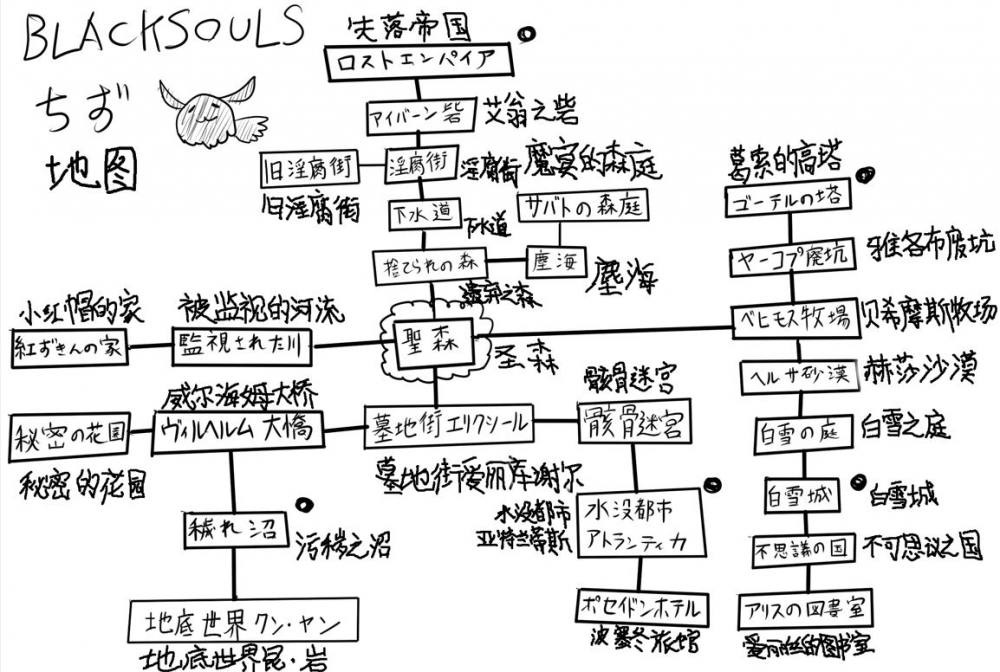 BLACKSOULS
ちず
地图
失落帝国
ロストエンパイア
アイバーン砦
艾翁之砦
旧淫腐街
旧淫腐街
淫腐街
淫腐街
魔宴的森庭
サバトの森庭
下水道
下水道
捨てられの森
遗弃之森
塵海
塵海
葛索的高塔
ゴーテルの塔
ヤーコプ廃坑
雅各布废坑
小红帽的家
紅ずきんの家
被监视的河流
監視された川
聖森
圣森
ベヒモス牧場
贝希摩斯牧场
ヘルサ砂漠
赫莎沙漠
威尔海姆大桥
秘密の花园
秘密的花园
ヴィルヘルム大橋
墓地街エリクシール
墓地街爱丽库谢尔
骸骨迷宮
骸骨迷宫
白雪の庭
白雪之庭
白雪城
白雪城
穢れ沼
污秽之沼
水没都市
亚特兰蒂斯
水没都市
アトランティカ
不思議の国
不可思议之国
地底世界クン・ヤン
地底世界昆・岩
ポセイドンホテル
波塞冬旅馆
アリスの図書室
爱丽丝的图书室